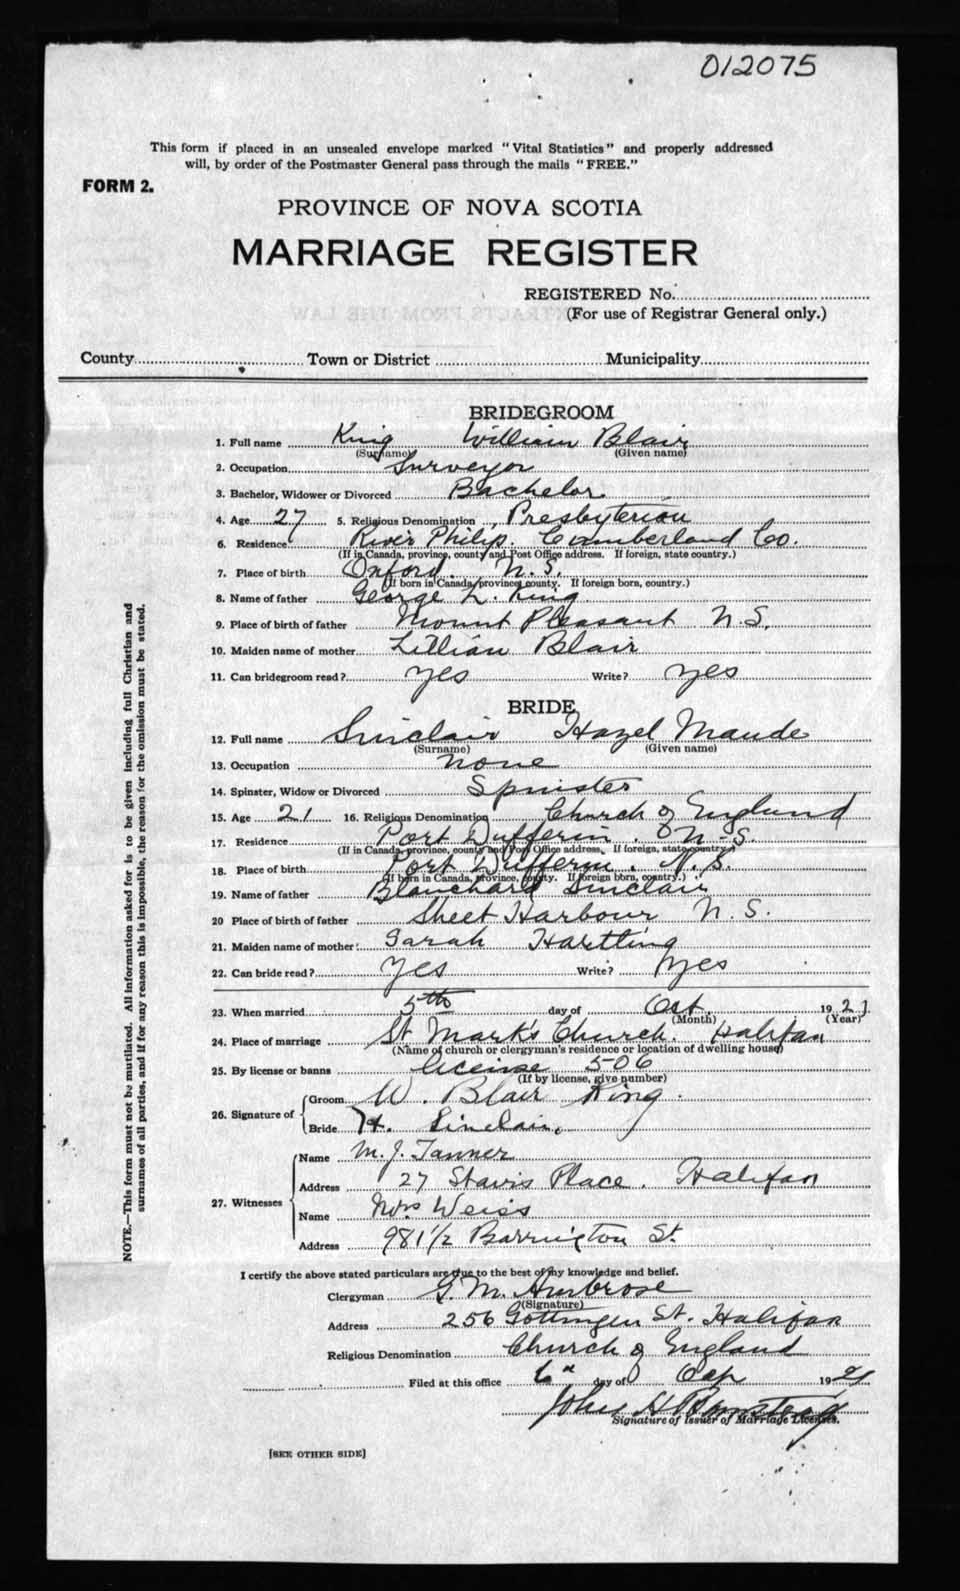 012075
This form if placed in an unsealed envelope marked "Vital Statistics" and properly addressed
will, by order of the Postmaster General pass through the mails "FREE."
FORM 2.
PROVINCE OF NOVA SCOTIA
MARRIAGE REGISTER
REGISTERED No.
(For use of Registrar General only.)
County Town or District Municipality
BRIDEGROOM
1. Full name King William Blair
(Surname) (Given name)
2. Occupation Surveyor
3. Bachelor, Widower or Divorced Bachelor
4. Age 27 5. Religious Denomination Presbyterian
6. Residence River Philip. Cumberland Co.
(If in Canada, province, county and Post Office address. If foreign, state country.)
7. Place of birth Oxford. N.S.
(If born in Canada, province, county. If foreign born, country.)
8. Name of father George L. King
9. Place of birth of father Mount Pleasant N.S.
10. Maiden name of mother Lillian Blair
11. Can bridegroom read? yes Write? yes
BRIDE
12. Full name Sinclair Hazel Maude
(Surname) (Given name)
13. Occupation none
14. Spinster, Widow or Divorced Spinster
15. Age 21 16. Religious Denomination Church of England
17. Residence Port Dufferin. N.S.
(If in Canada, province, county and Post Office address, If foreign, state country.)
18. Place of birth Port Dufferin. N.S.
(If born in Canada, province, county. If foreign born, country.)
19. Name of father Blanchard Sinclair
20 Place of birth of father Sheet Harbour N.S.
21. Maiden name of mother: Sarah Hartling
22. Can bride read? yes Write? yes
23. When married 5th day of Oct. 1921.
(Month) (Year)
24. Place of marriage St. Mark's Church. Halifax
(Name of church or clergyman's residence or location of dwelling house)
25. By license or banns license 506
(If by license, give number)
26. Signature of Groom W. Blair King.
Bride H. Sinclair.
27. Witnesses Name M. J. Tanner
Address 27 Place. Halifax
Name Mrs Weiss
Address 981 1/2 Barrington St.
I certify the above stated particulars are true to the best of my knowledge and belief.
Clergyman G. M. Ambrose
(Signature)
Address 256 Gottingen St. Halifax
Religious Denomination Church of England
Filed at this office 6 day of 1921
John H
Signature of Issuer of Marriage Licenses.
[SEE OTHER SIDE]
NOTE.—This form must not be mutilated. All information asked for is to be given including full Christian and
surnames of all parties, and if for any reason this is impossible, the reason for the omission must be stated.